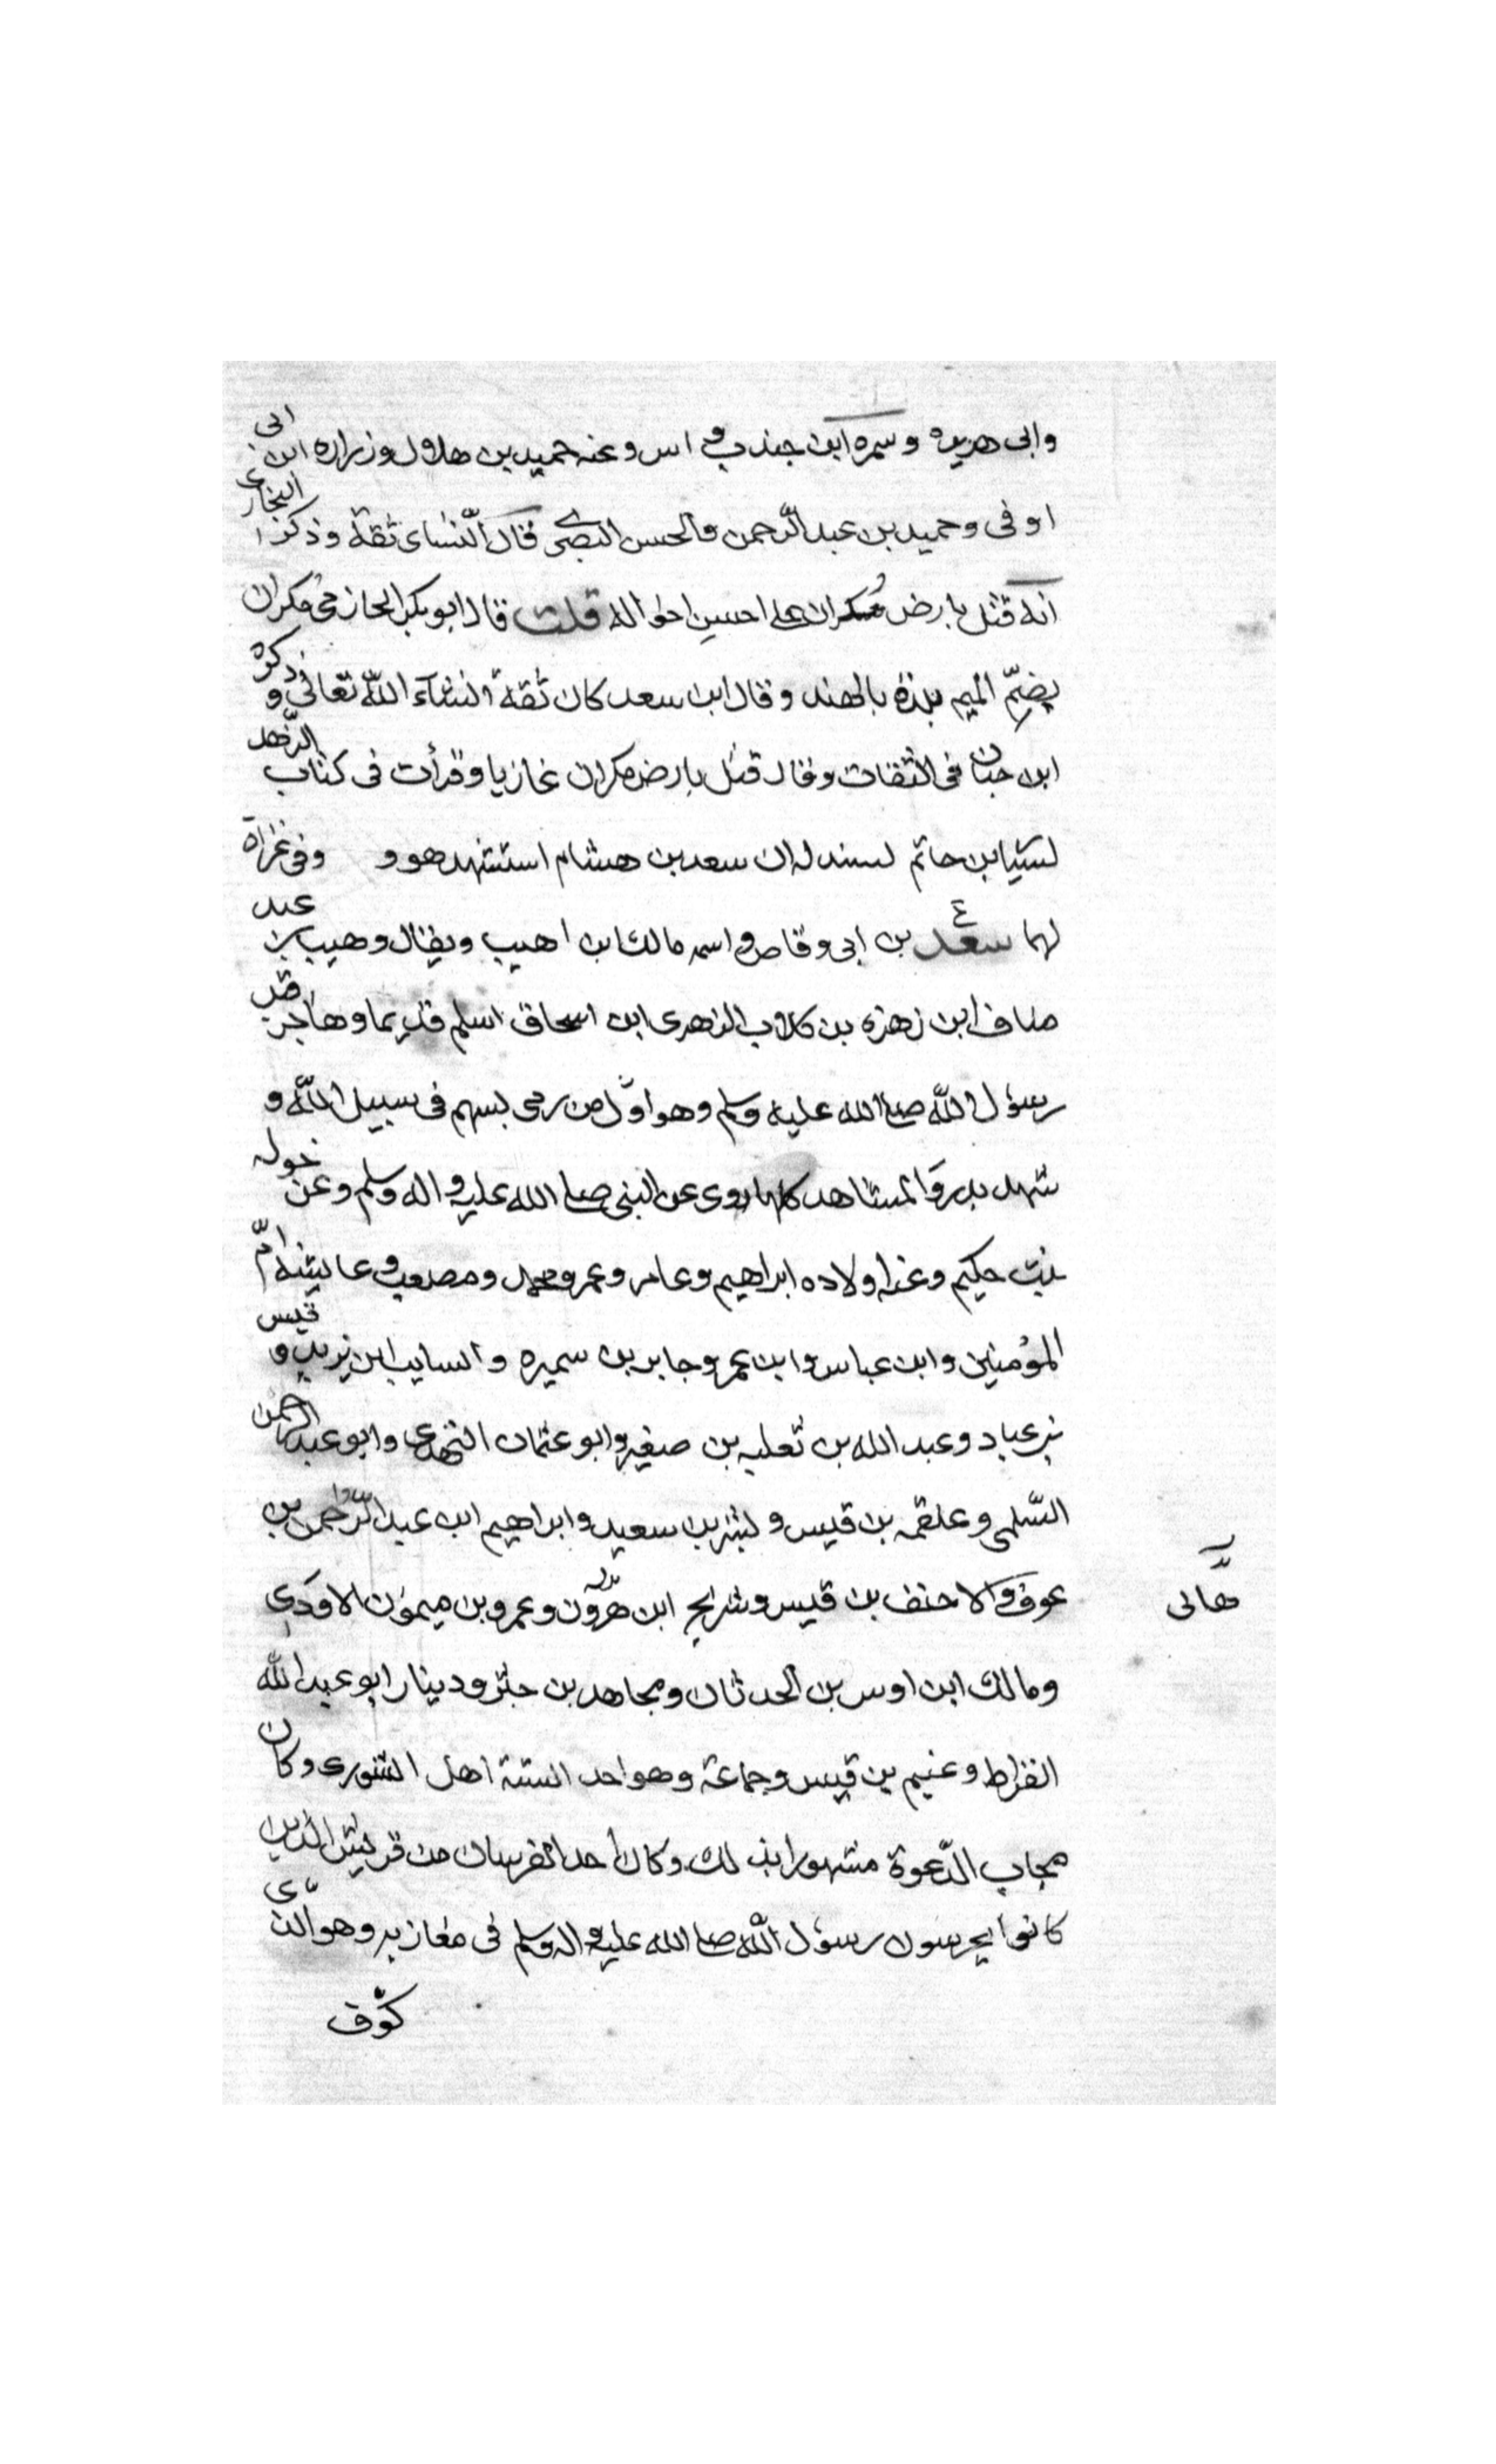 وابى هريره وسمره ابن جندب و اس وعنه حميد بن هلال وزراره ابن ابى
اوفى وحميد بن عبد الرّحمن والحسن البصرى قال النّسائ ثقة وذكر البخارى
انه قتل بارض مكران على احسن احواله قلت قال ابو بكر الحازمى مكران
بضمّ الميم بلدة بالهند وقال ابن سعد كان ثقة انشاء اللّه تعالى و ذكره
ابن حبان فى الثقات وقال قتل بارض مكران غازيا وقرأت فى كتاب الزّهد
لسيّا بن حاتم لسندله ان سعد بن هشام استشهد هو و وفى غزاة
لهما سعد بن ابى وقاص و اسمه مالك ابن اهيب ويقال وهيب بن عبد
مناف ابن زهره بن كلاب الزهرى ابن اسحاق اسلم قديما وهاجر قبل
رسول اللّه صلى الله عليه وسلم وهو اوّل من رمى بسهم فى سبيل اللّه و
شهد بدر والمشاهد كلها روى عن النبى صلى الله عليه و اله وسلم وعن خوله
بنت حكيم وعنه اولاده ابراهيم وعامر وعمر ومحمد ومصعب و عايشه امّ
المؤمنين وابن عباس وابن عمر وجابر بن سميره والسايب ابن يزيد و قيس
بن عباد وعبد الله بن ثعلبه بن صغير وابو عثمان النّهدى وابو عبد الرحمن
السّلمى وعلقمه بن قيس و بشر بن سعيد وابراهيم ابن عبد الرّحمن بن
عوف و الاحنف بن قيس وشريح ابن هرون وعمرو بن ميمون الاودى
هانى
ومالك ابن اوس بن الحدثان ومجاهد بن جبر ودينار ابو عبد اللّه
القراط وغنيم بن قيس وجماعة وهو احد الستة اهل الشورى وكان
مجاب الدّعوة مشهورا بذلك وكان احد الفرسان من قريش الذين
كانوا يحرسون رسول اللّه صلى الله عليه و اله وسلم فى مغازيه وهو الذى
كوّف